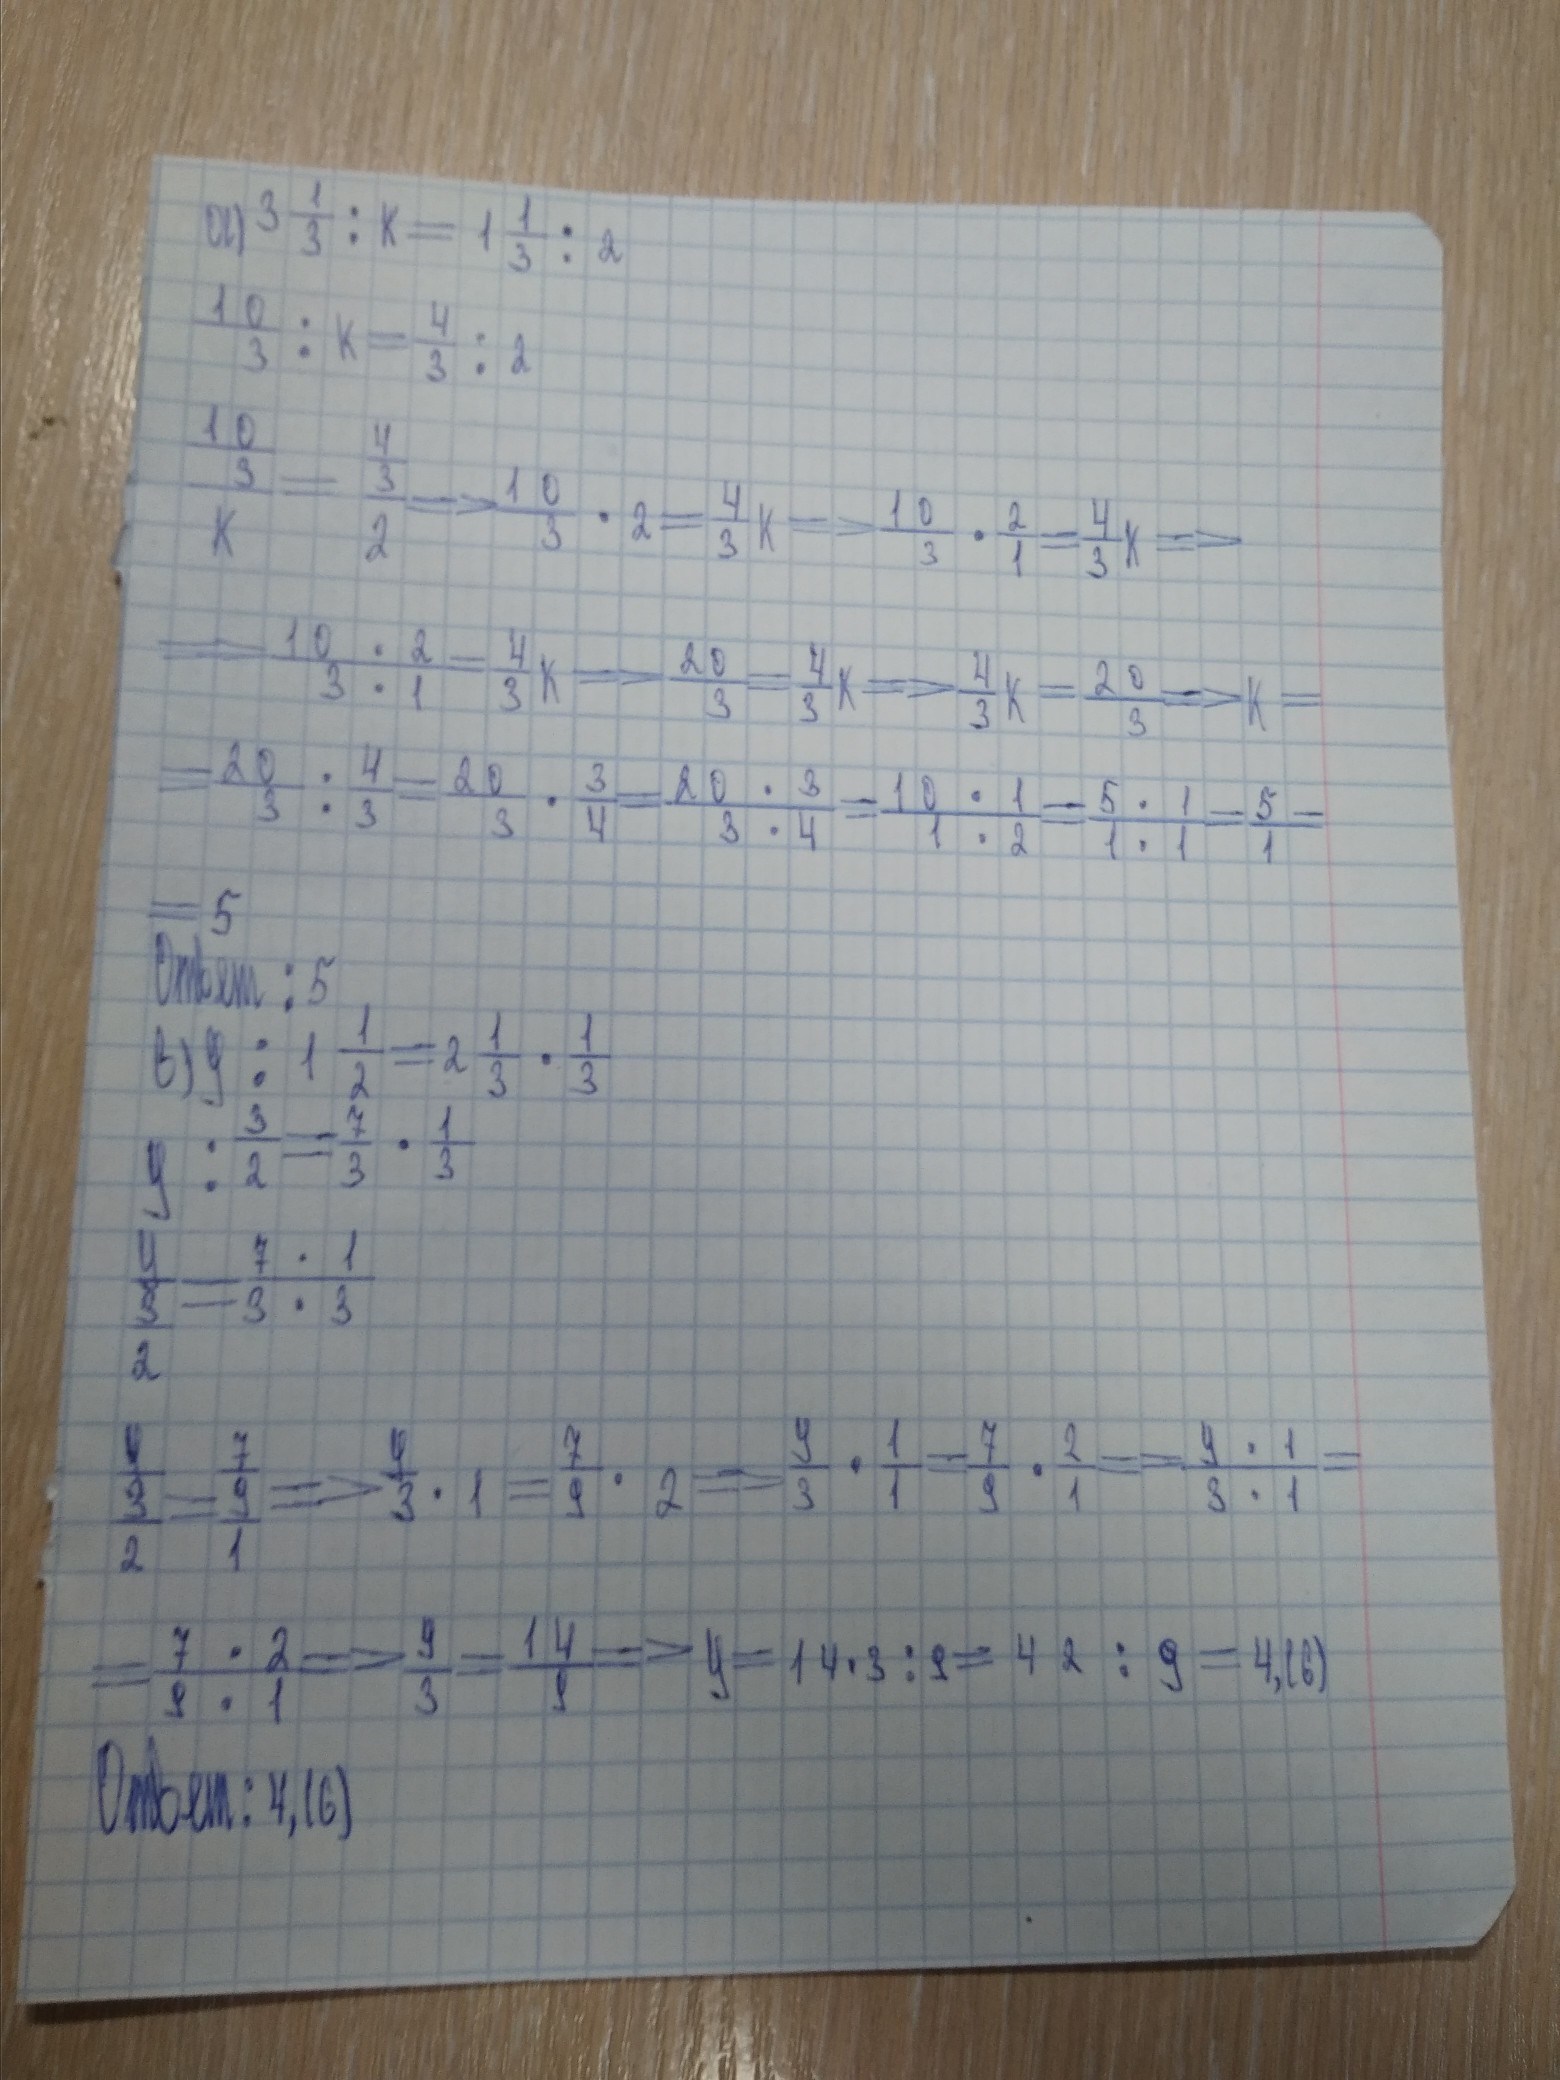 а) 3 1/3 : K = 1 1/3 : 2
10/3 : K = 4/3 : 2
10/3/K = 4/3/2 => 10/3 · 2 = 4/3 K => 10/3 · 2/1 = 4/3 K =>
=> 10 · 2/3 · 1 = 4/3 K => 20/3 = 4/3 K => 4/3 K = 20/3 => K =
= 20/3 : 4/3 = 20/3 · 3/4 = 20 · 3/3 · 4 = 10 · 1/1 · 2 = 5 · 1/1 · 1 = 5/1 =
= 5
Ответ : 5
в) y : 1 1/2 = 2 1/3 · 1/3
y : 3/2 = 7/3 · 1/3
y/3/2 = 7 · 1/3 · 3
y/3/2 = 7/9/1 => y/3 · 1 = 7/9 · 2 => y/3 · 1/1 = 7/9 · 2/1 => y · 1/3 · 1 =
= 7 · 2/9 · 1 => y/3 = 14/9 => y = 14·3 : 9 = 42 : 9 = 4,(6)
Ответ: 4,(6)